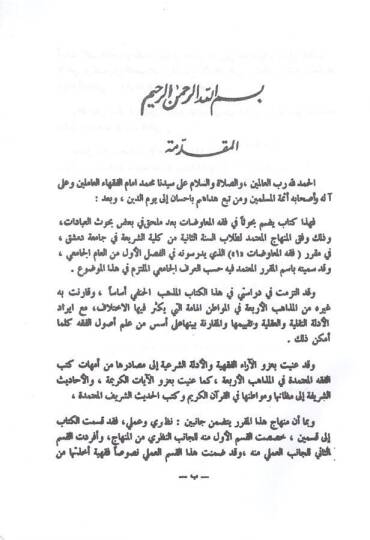 بسم الله الرحمن الرحيم
المقدمة
الحمد لله رب العالمين ، والصلاة والسلام على سيدنا محمد امام الفقهاء العاملين وعلى
آله وأصحابه أئمة المسلمين ومن تبع هداهم باحسان إلى يوم الدين ، وبعد :
فهذا كتاب يضم بحوثاً في فقه المعاوضات بعد ملحق في بعض بحوث العبادات،
وذلك وفق المنهاج المعتمد لطلاب السنة الثانية من كلية الشريعة في جامعة دمشق ،
في مقرر ( فقه المعاوضات «١» ) الذي يدرسونه في الفصل الأول من العام الجامعي ،
وقد سميته باسم المقرر المعتمد فيه حسب العرف الجامعي الملتزم في هذا الموضوع .
وقد التزمت في دراستي في هذا الكتاب المذهب الحنفي أساساً ، وقارنت به
غيره من المذاهب الأربعة في المواطن الهامة التي يكثر فيها الاختلاف، مع ايراد
الأدلة النقلية والعقلية وتقييمها والمقارنة بينها على أسس من علم أصول الفقه كلما
أمكن ذلك .
وقد عنيت بعزو الآراء الفقهية والأدلة الشرعية إلى مصادرها من أمهات كتب
الفقه المعتمدة في المذاهب الأربعة ، كما عنيت بعزو الآيات الكريمة ، والأحاديث
الشريفة إلى مظانها ومواطنها في القرآن الكريم وكتب الحديث الشريف المعتمدة ،
وبما أن منهاج هذا المقرر يتضمن جانبين : نظري وعملي، فقد قسمت الكتاب
إلى قسمين ، خصصت القسم الأول منه للجانب النظري من المنهاج، وأفردت القسم
الثاني للجانب العملي منه ، وقد ضمنت هذا القسم العملي نصوصاً فقهية أخذتها من
— ب —